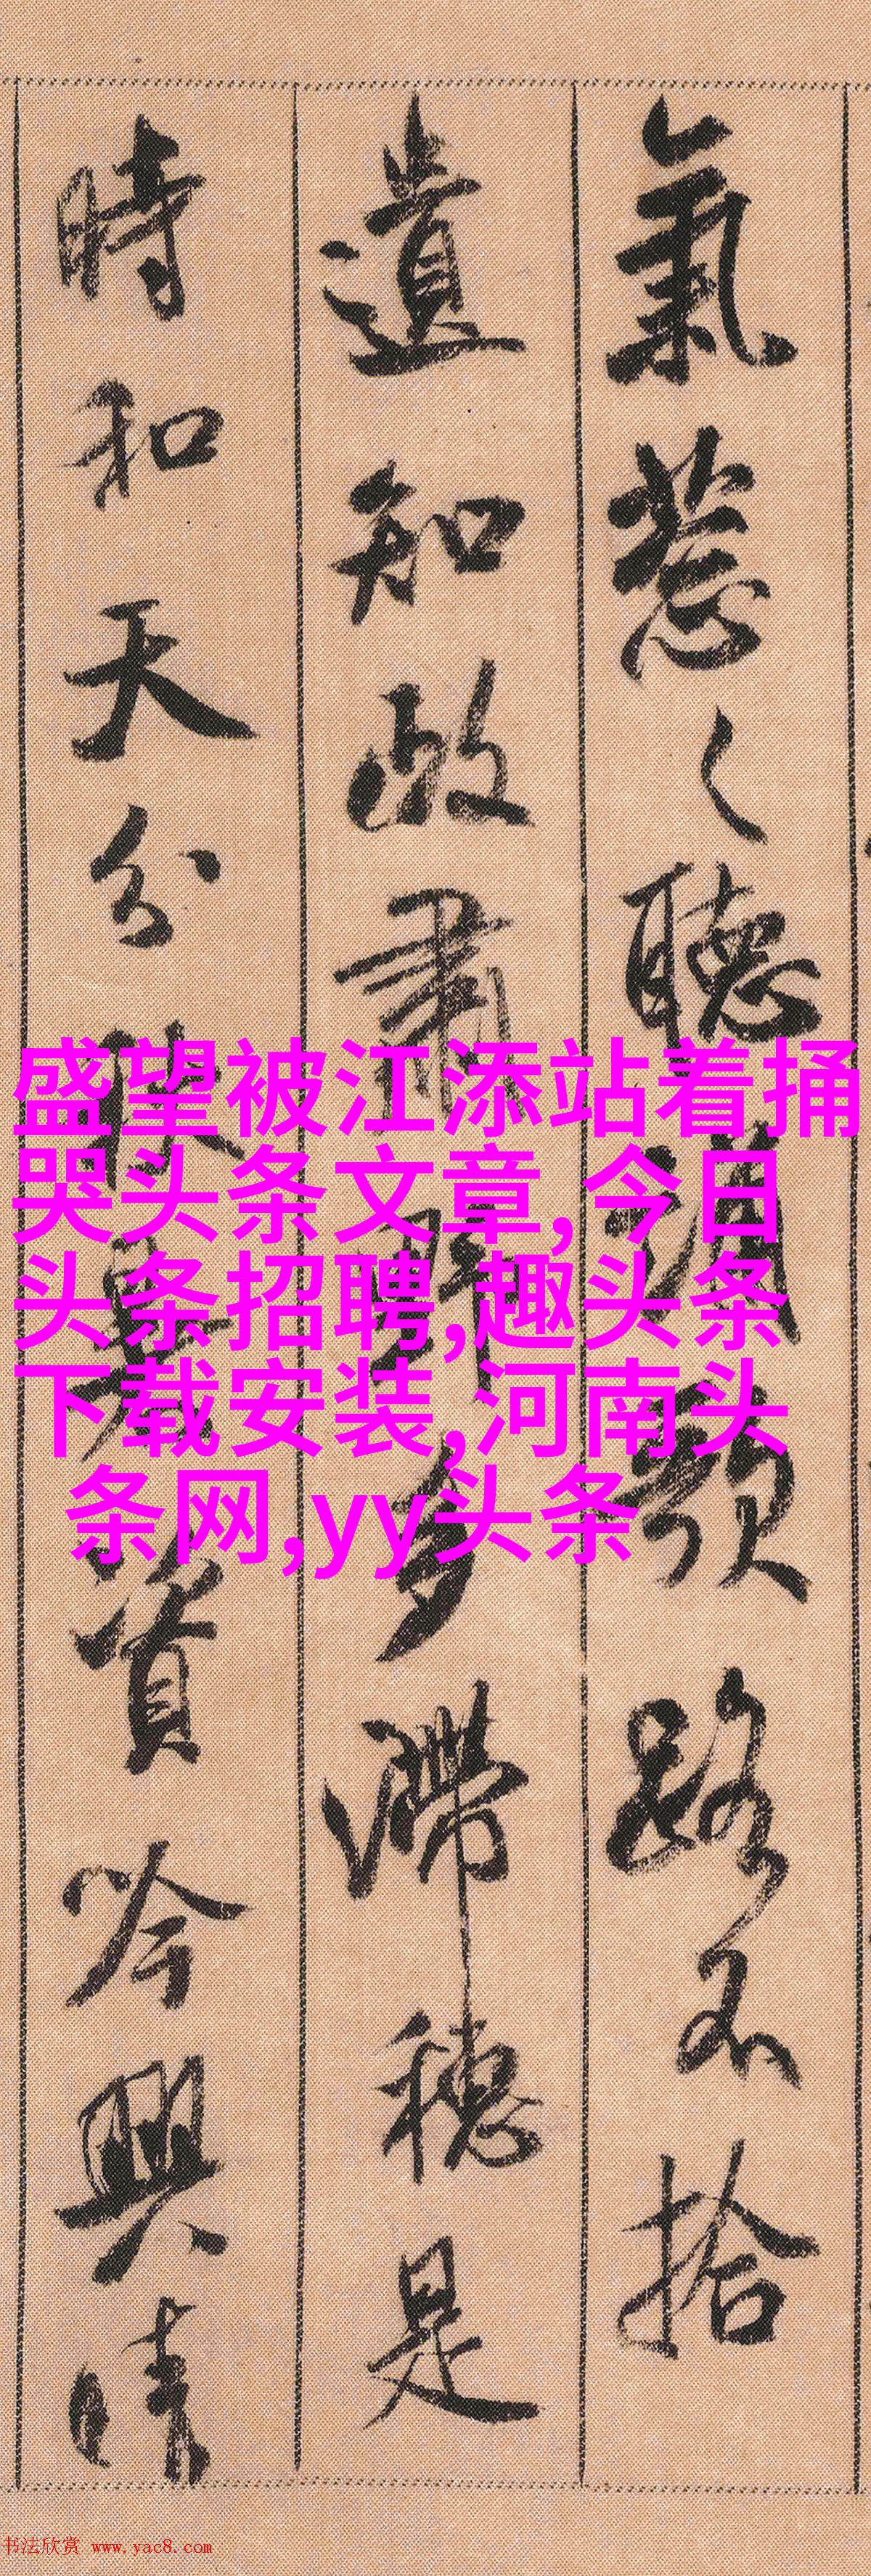 氣蔥〻聽誦歌路不拾
遺知政肅野多滯穗是
時和天分秋暑資吟興晴
盛望被江添站着捅
哭头条文章,今日
头条招聘,趣头条
下载安装,河南头
条网,yy头条
书法欣赏 www.yac8.com